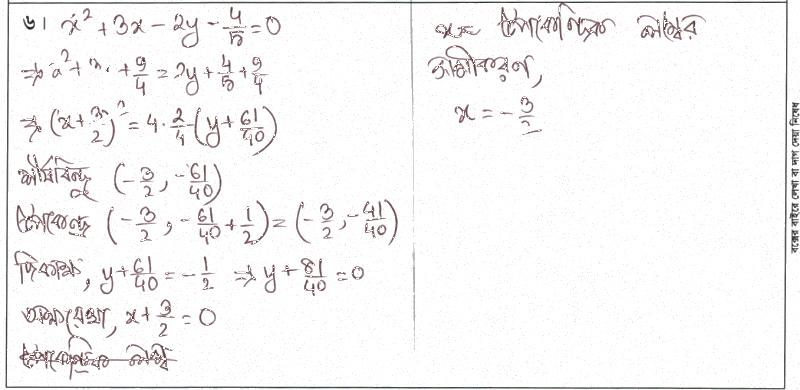 ৬। x² + 3x - 2y - 4/5 = 0
⇒ x² + 3x + 9/4 = 2y + 4/5 + 9/4
⇒ (x + 3/2)² = 4 · 2/4 (y + 61/40)
শীর্ষবিন্দু (-3/2, -61/40)
উপকেন্দ্র (-3/2, -61/40 + 1/2) = (-3/2, -41/40)
দিকাক্ষ, y + 61/40 = -1/2 ⇒ y + 81/40 = 0
অক্ষরেখা, x + 3/2 = 0
উপকেন্দ্রিক লম্বের
সমীকরণ,
x = -3/2
বক্সের বাইরে লেখা বা দাগ দেয়া নিষেধ